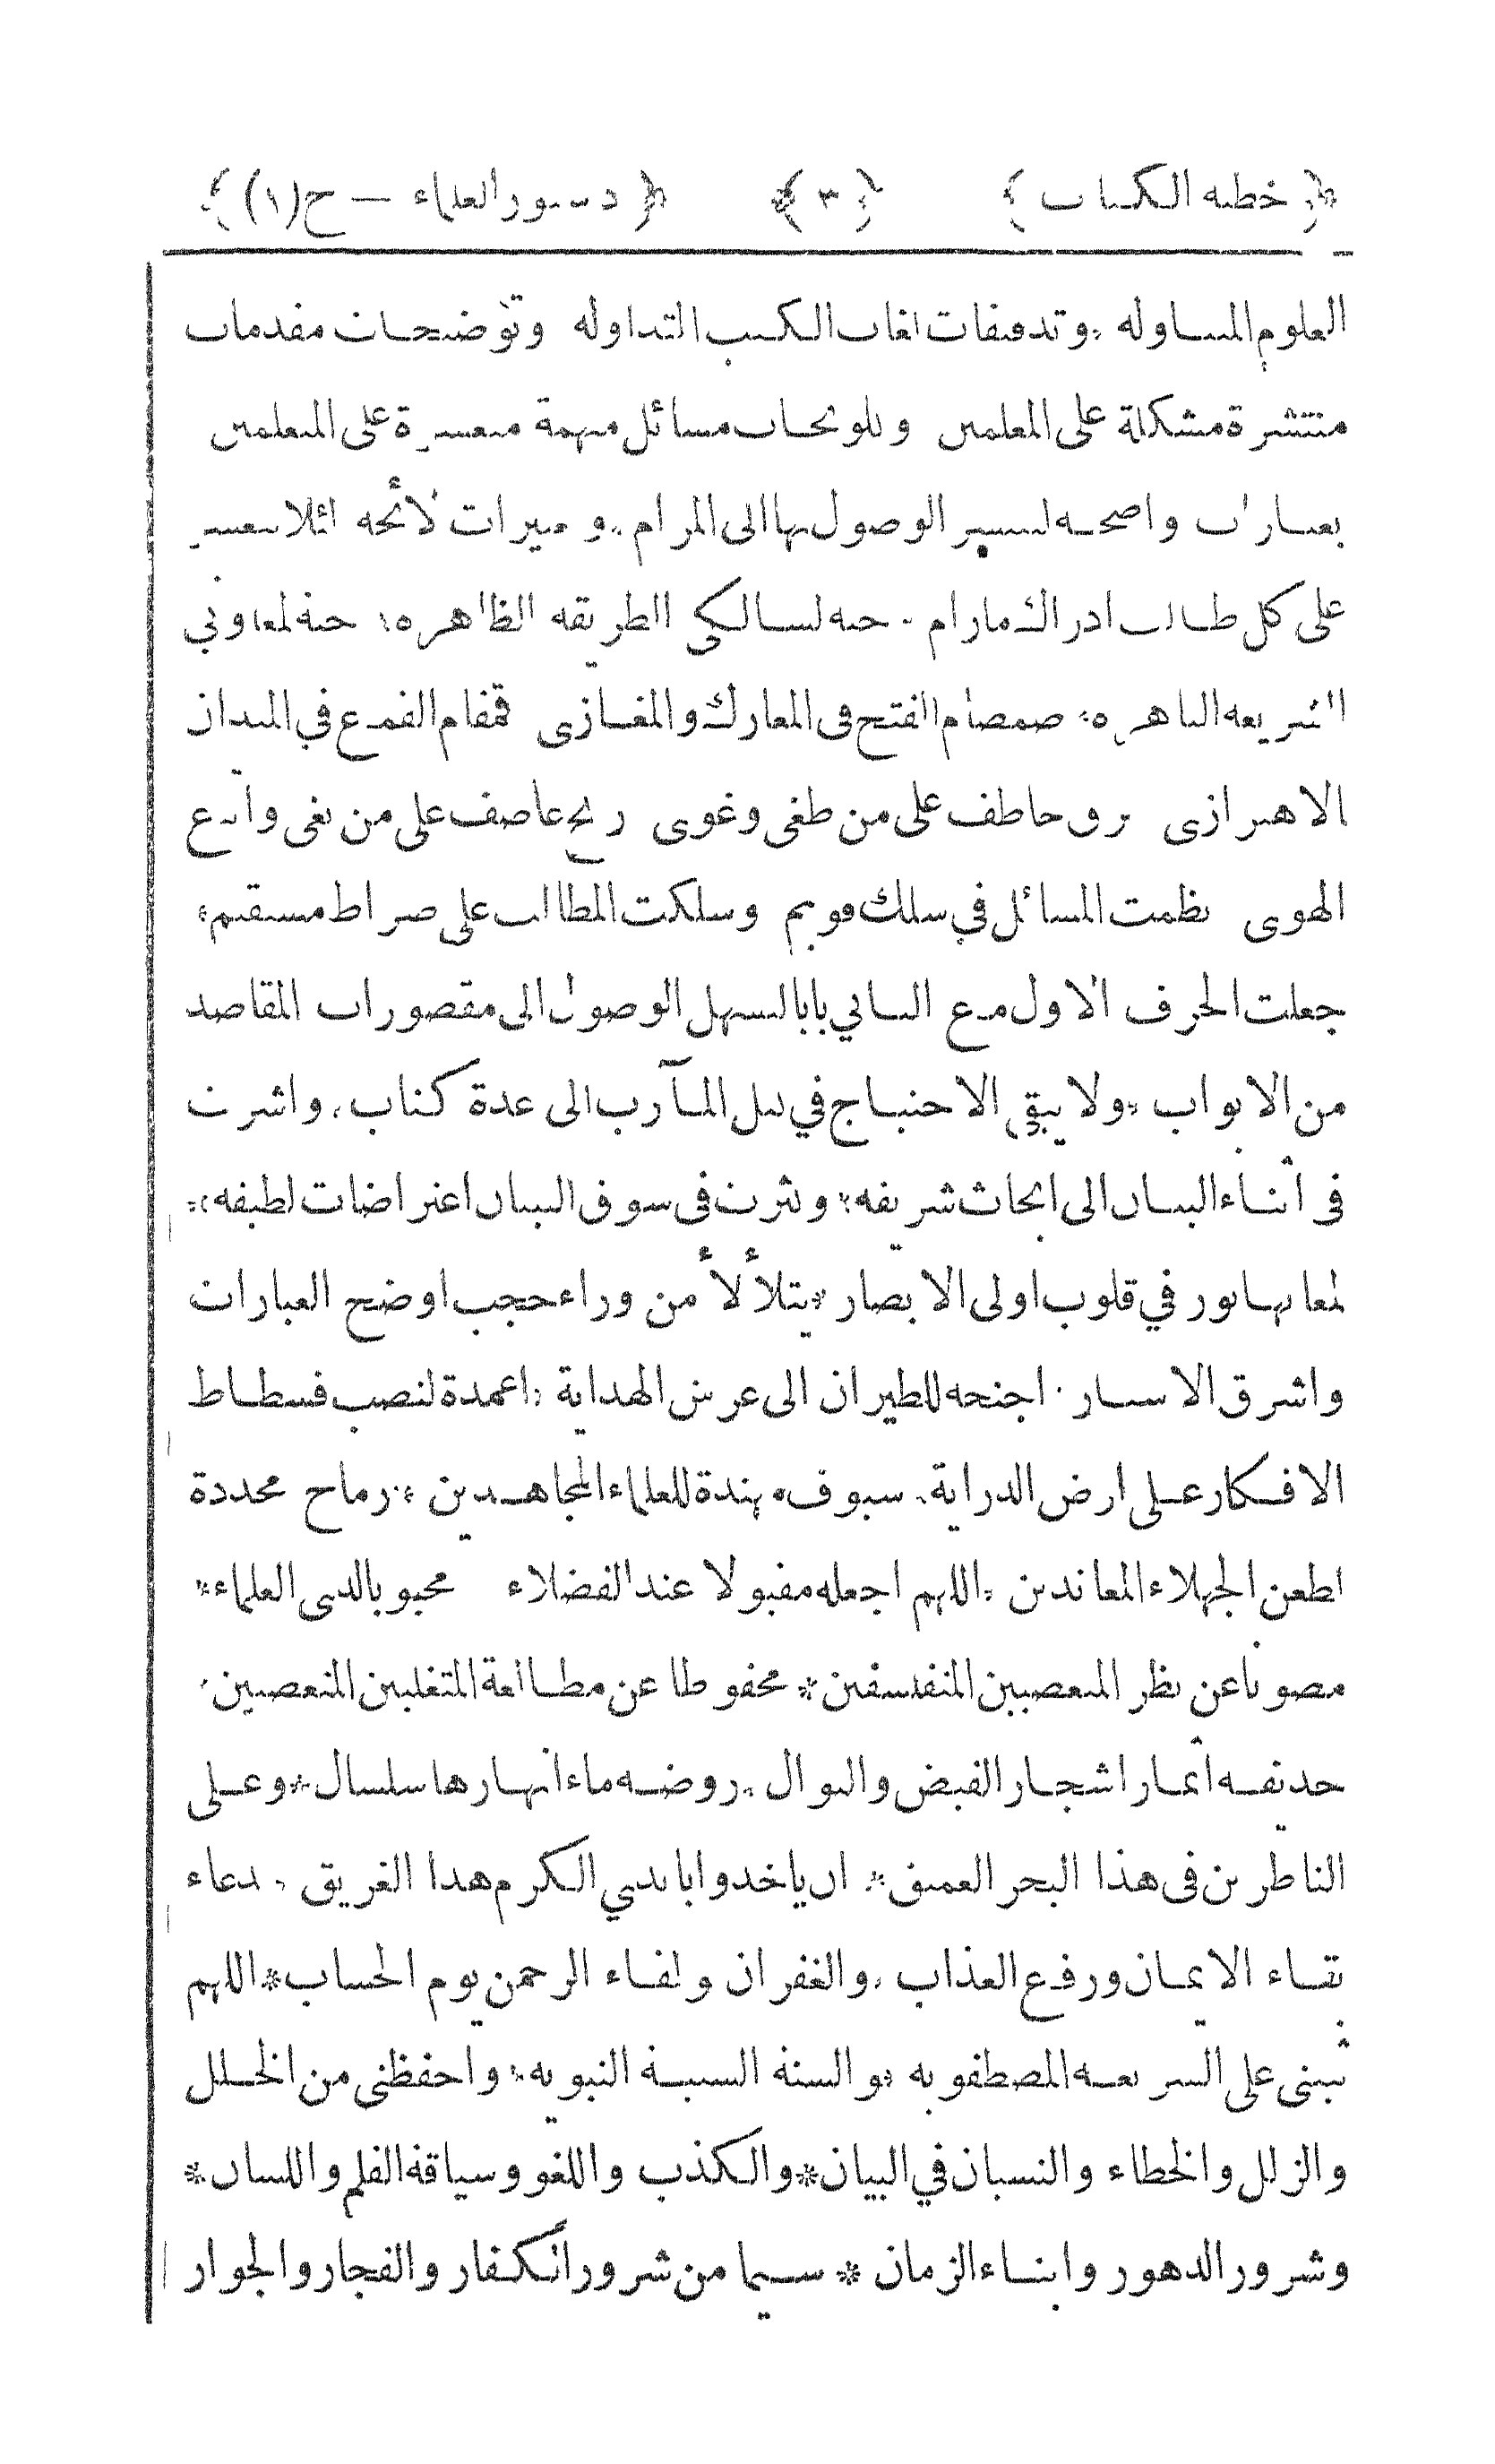 ﴿ خطبة الكتاب ﴾ ﴿ ٣ ﴾ ﴿ دستور العلماء — ج (١) ﴾
العلوم المتناولة * وتدقيقات لغات الكتب المتداولة * وتوضيحات مقدمات
منتشرة مشكلة على المعلمين * وتلويحات مسائل مبهمة متعسرة على المتعلمين
بعبارات واضحة ليتيسر الوصول بها الى المرام * و لائحة لئلا يتعسر
على كل طالب ادراك مارام * لسالكي الطريقة الظاهرة * لمعاوني
الشريعة الباهرة * صمصام الفتح في المعارك والمغازى * قمقام القمع في الميدان
الاهبرازى * برق خاطف على من طغى وغوى * ريح عاصف على من بغى واتبع
الهوى * نظمت المسائل في سلك قويم * وسلكت المطالب على صراط مستقيم *
جعلت الحرف الاول مع الثاني بابا ليسهل الوصول الى مقصورات المقاصد
من الابواب * ولا يبقى الاحتياج في نيل المآرب الى عدة كتاب * واشرت
في اثناء البيان الى ابحاث شريفة * ونثرت في سوق التبيان اعتراضات لطيفة *
لمعانيها نور في قلوب اولى الابصار * يتلألأ من وراء حجب اوضح العبارات
واشرق الاستار * اجنحة للطيران الى عرش الهداية * اعمدة لنصب فسطاط
الافكار على ارض الدراية * سيوف مهندة للعلماء المجاهدين * رماح محددة
لطعن الجهلاء المعاندين * اللهم اجعله مقبولا عند الفضلاء * محبوبا لدى العلماء *
مصونا عن نظر المتعصبين المتفلسفين * محفوظا عن مطالعة المتغلبين المتعصبين *
حديقة اثمار اشجار الفيض والنوال * روضة ماء انهارها سلسال * وعلى
الناظرين في هذا البحر العميق * ان ياخذوا بايدي الكرم هذا الغريق * بدعاء
بقاء الايمان ورفع العذاب * والغفران ولقاء الرحمن يوم الحساب * اللهم
ثبتني على الشريعة المصطفوية * والسنة السنية النبوية * واحفظني من الخلل
والزلل والخطاء والنسيان في البيان * والكذب واللغو وسياقة القلم واللسان *
وشرور الدهور وابناء الزمان * سيما من شرور الكفار والفجار والجوار